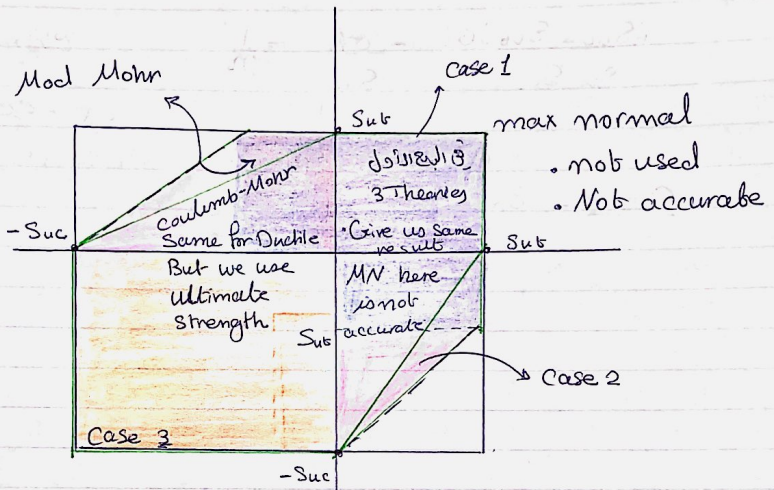 Mod Mohr
Case 1
Sut
max normal
. not used
. Not accurate
في الربع الأول
3 Theories
. Give us same
result
Coulumb-Mohr
Same for Ductile
-Suc
Sut
But we use
ultimate
strength
MN here
is not
accurate
Sut
Case 2
Case 3
-Suc